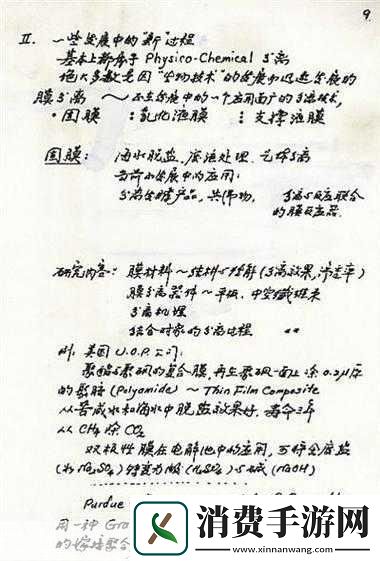 9.
II. 一些发展中的"新"过程
基本上都属于 Physico-Chemical 分离
绝大多数是因"生物技术"的发展而迅速发展的
膜分离 ～ 正在发展中的一个应用面广的分离技术,
·固膜 :乳化液膜 :支撑液膜
固膜: 海水脱盐、废液处理、气体分离
当前的发展中的应用:
分离发酵产品, 共沸物, 分离与反应联合
的膜反应器.
研究内容: 膜材料～结构与性能(分离效果,渗透率)
膜分离器件～平板、中空纤维束
分离机理
结合对象的分离过程
例. 美国 U.O.P. 公司:
聚酯与聚砜的复合膜, 再在聚砜一面上涂 0.2μ厚
的聚胺 (Polyamide) ～ Thin Film Composite
从苦咸水和海水中脱盐效果好, 寿命3年
从 CH4 除 CO2
双极性膜在电解池中的应用, 可将金属盐
(如 Na2SO4) 转变为酸 (H2SO4) 与碱 (NaOH)
Purdue
用一种 Gra
的嫁接聚合
消费手游网
www.xinnanwang.com